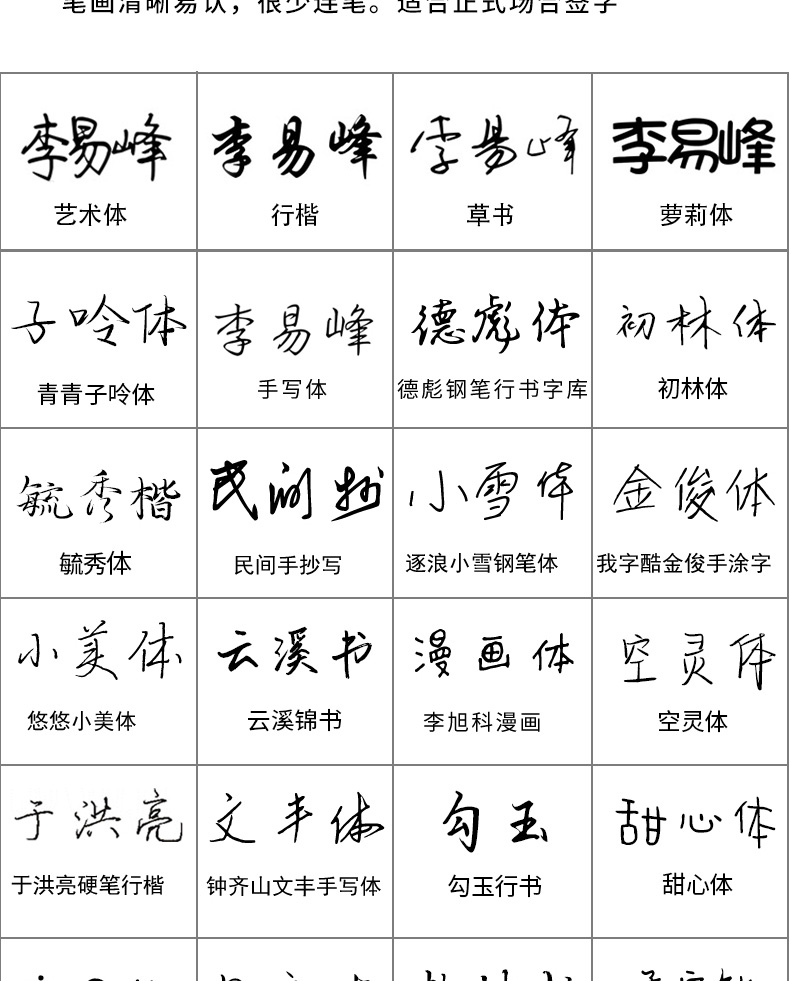 笔画清晰易认，很少连笔。适合正式场合签字
李易峰 李易峰 李易峰 李易峰
艺术体 行楷 草书 萝莉体
子呤体 李易峰 德彪体 初林体
青青子呤体 手写体 德彪钢笔行书字库 初林体
毓秀楷 民间抄 小雪体 金俊体
毓秀体 民间手抄写 逐浪小雪钢笔体 我字酷金俊手涂字
小美体 云溪书 漫画体 空灵体
悠悠小美体 云溪锦书 李旭科漫画 空灵体
于洪亮 文丰体 勾玉 甜心体
于洪亮硬笔行楷 钟齐山文丰手写体 勾玉行书 甜心体